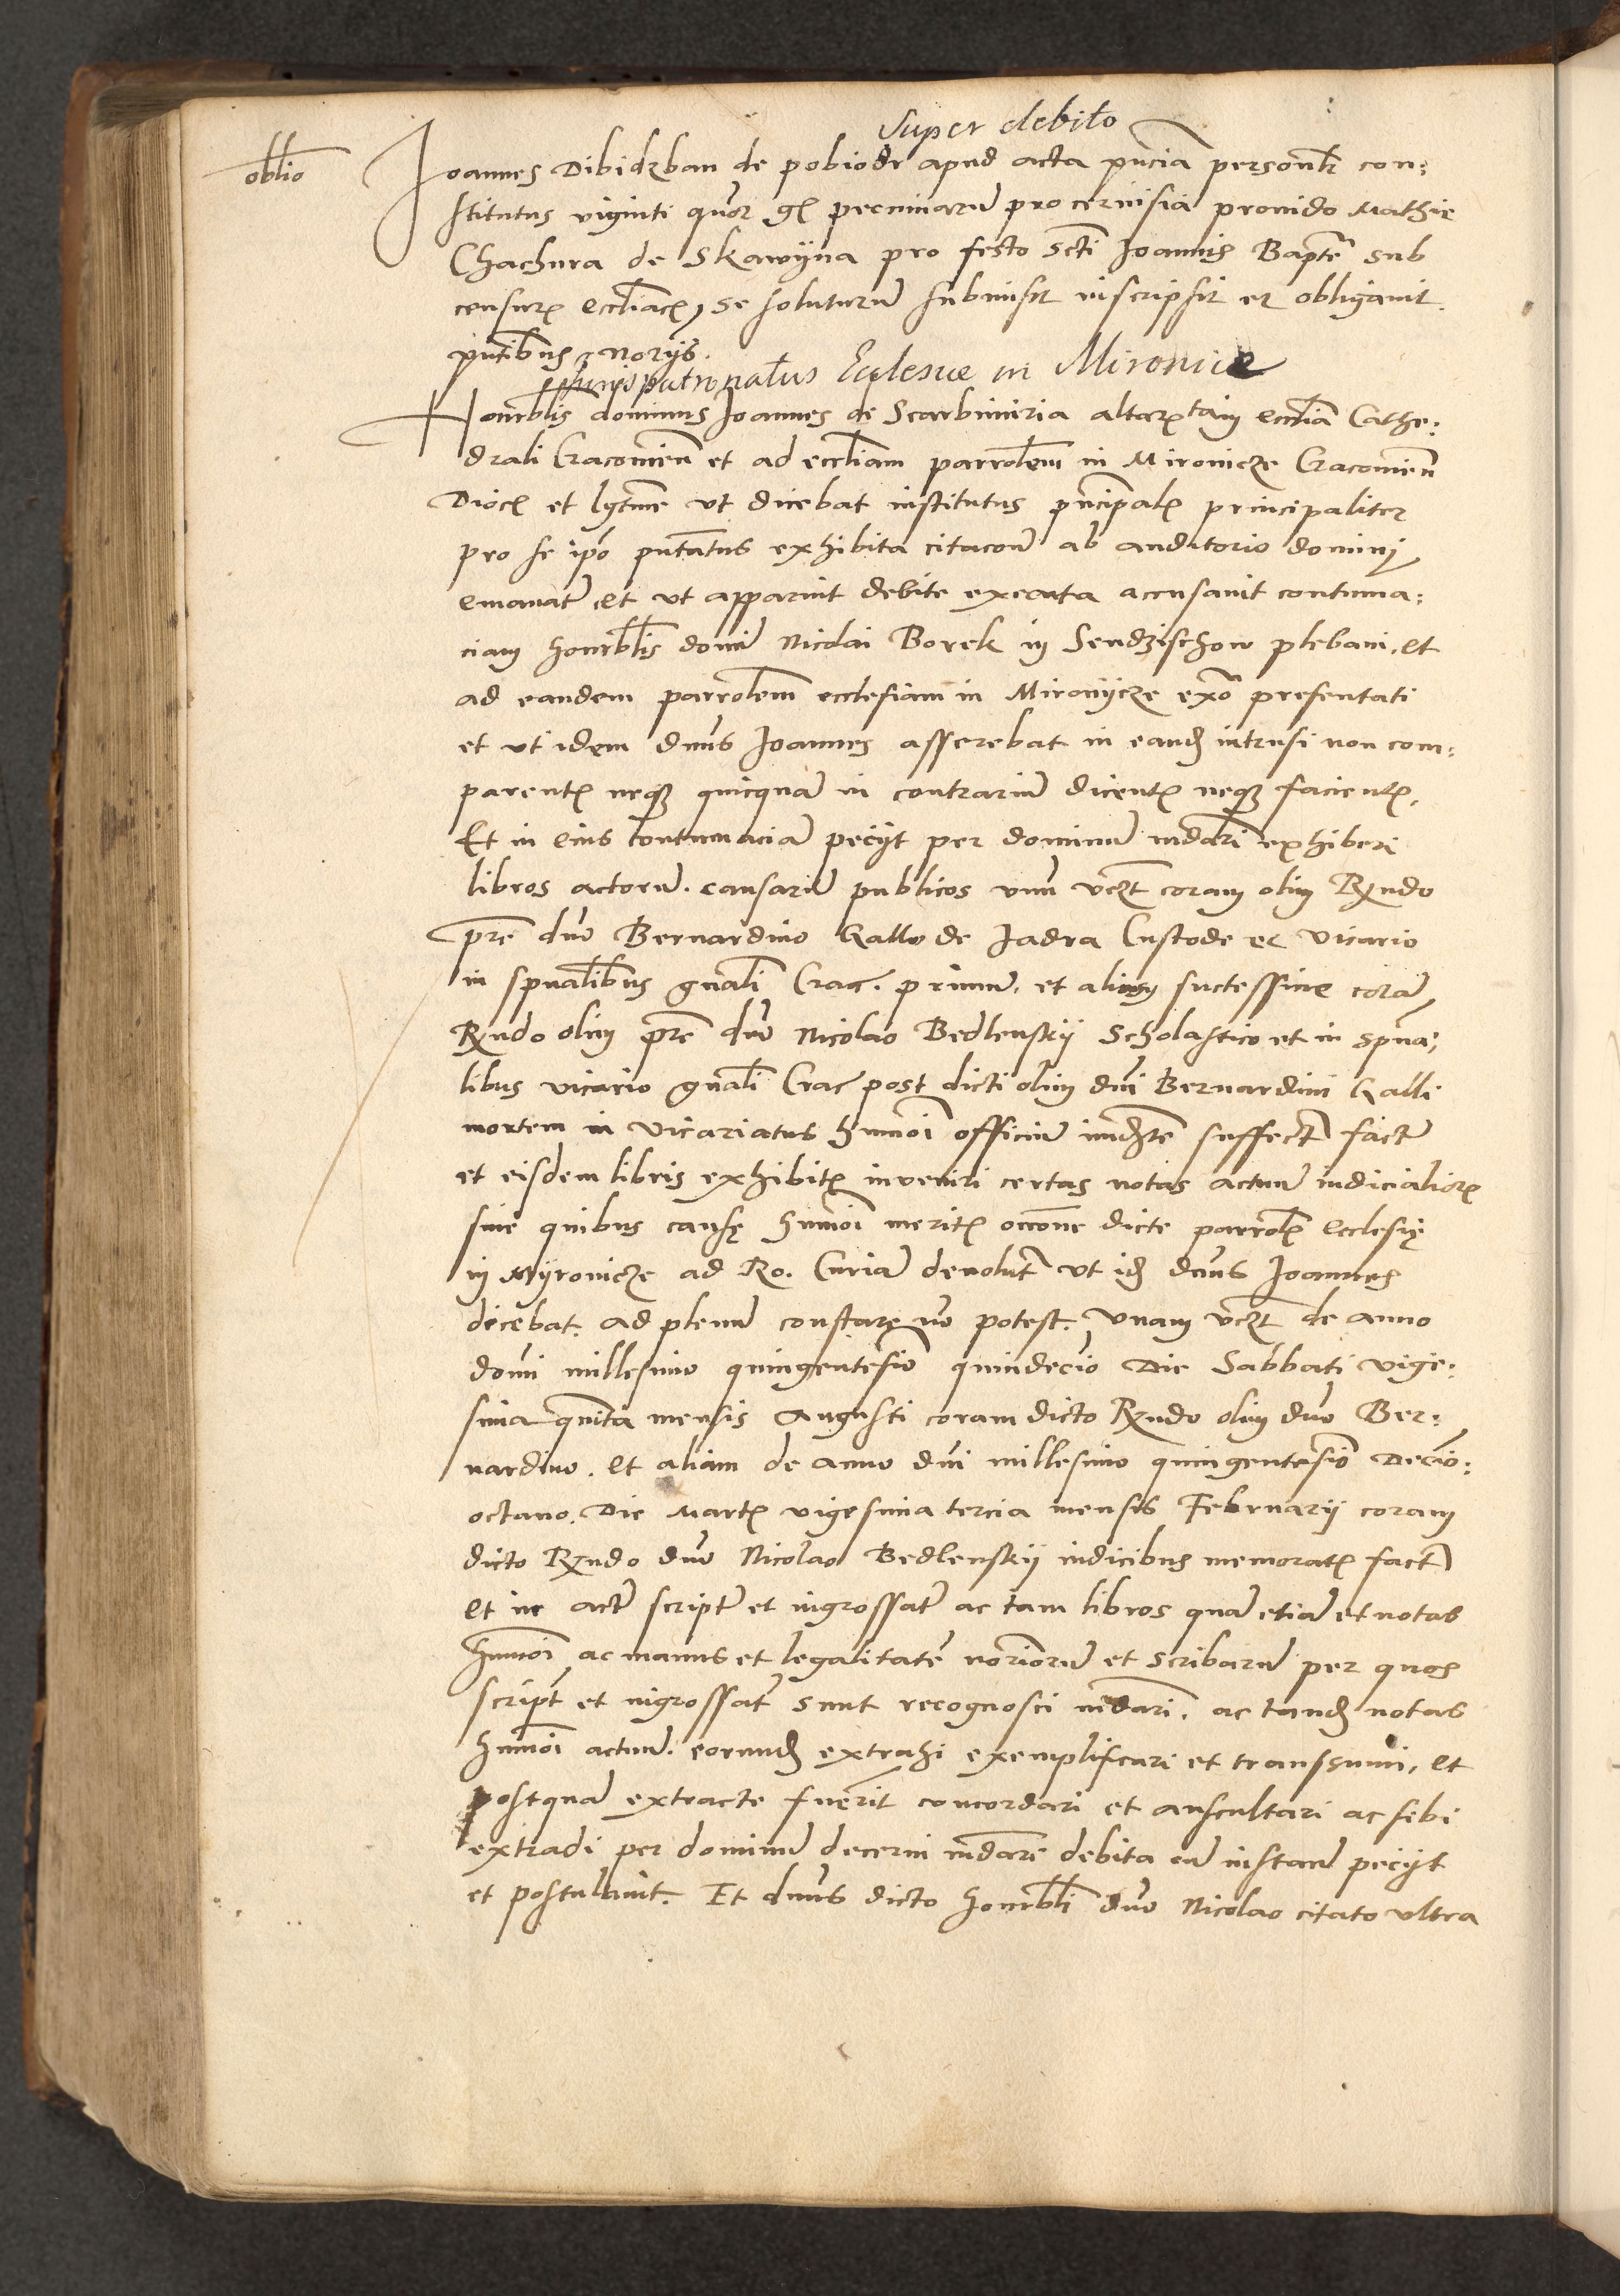 Super debito
oblio
Joannes Dibidzban de pobiodr apud acta pn̄cia personlr con:
stitutus viginti quor gr pecuniarū pro cervisia provido Mathie
Chachura de Skawyna pro festo Scti Joannis Bapte sub
censuris eccliacis se soluturū submisit inscripsit et obligavit
pntibus norijs.
Jurispatronatus Eclesiae in Mironice
Honorblis dominus Joannes de Scarbimiria altarista in ecclia Cathe:
drali Cracovien et ad eccliam parrolem in Mironicze Cracovien
Dioc et lgtme ut dicebat institutus principalis principaliter
pro se ipo pntatus exhibita citacone ab auditorio domini
emanata et ut apparuit debite executa accusavit contuma:
ciam honorblis domi Nicolai Borek in Sendzischow plebani, et
ad eandem parrolem ecclesiam in Mironycze exo presentati
et ut idem dnus Joannes asserebat in eand intrusi non com:
parentis neque quicquā in contrariū dicentis neque facientis.
Et in eius contumaciā petijt per dominū mdari exhiberi
libros actorū causarū publicos unū vczt coram olim Rndo
pre dno Bernardino Gallo de Jadra Custode et vicario
in spualibus gnali Crac. primū et alium successive corā
Rndo olim pre dno Nicolao Bedlenskij Scholastico et in spua:
libus vicario gnali Crac post dicti olim dni Bernardini Galli
mortem in vicariatus hmoi officiū imedte suffecto facto
et eisdem libris exhibitis inveniri certas notas actuū iudicialiōr
sine quibus causę hmoi meritis occone dicte parrolis ecclesię
in Myronicze ad Ro. Curiā devolute ut id dnus Joannes
dicebat. ad plenū constare nō potest. Unam vczt de anno
domi millesimo quingentesimo quindecio Die Sabbati vige:
sima quīta mensis Augusti coram dicto Rndo olim dno Ber:
nardino. et aliam de anno dni millesimo quingentesimo Decio:
octavo. Die Martis vigesima tercia mensis Februarij coram
dicto Rndo dno Nicolao Bedlenskij iudicibus memoratis fact
et in acta script et ingrossat ac tam libros quā etiā et notas
hmoi ac manus et legalitatē noriorū et scribarū per quos
script et ingrossat sunt recognosci mdari. ac tand notas
hmoi actuū eorund extrahi exemplificari et transsumi, et
postquā extracte fuerīt concordari et auscultari ac sibi
extradi per dominū decerni mdare debita cū instancia petijt
et postulavit. Et dnus dicto honorbli dno Nicolao citato ultra